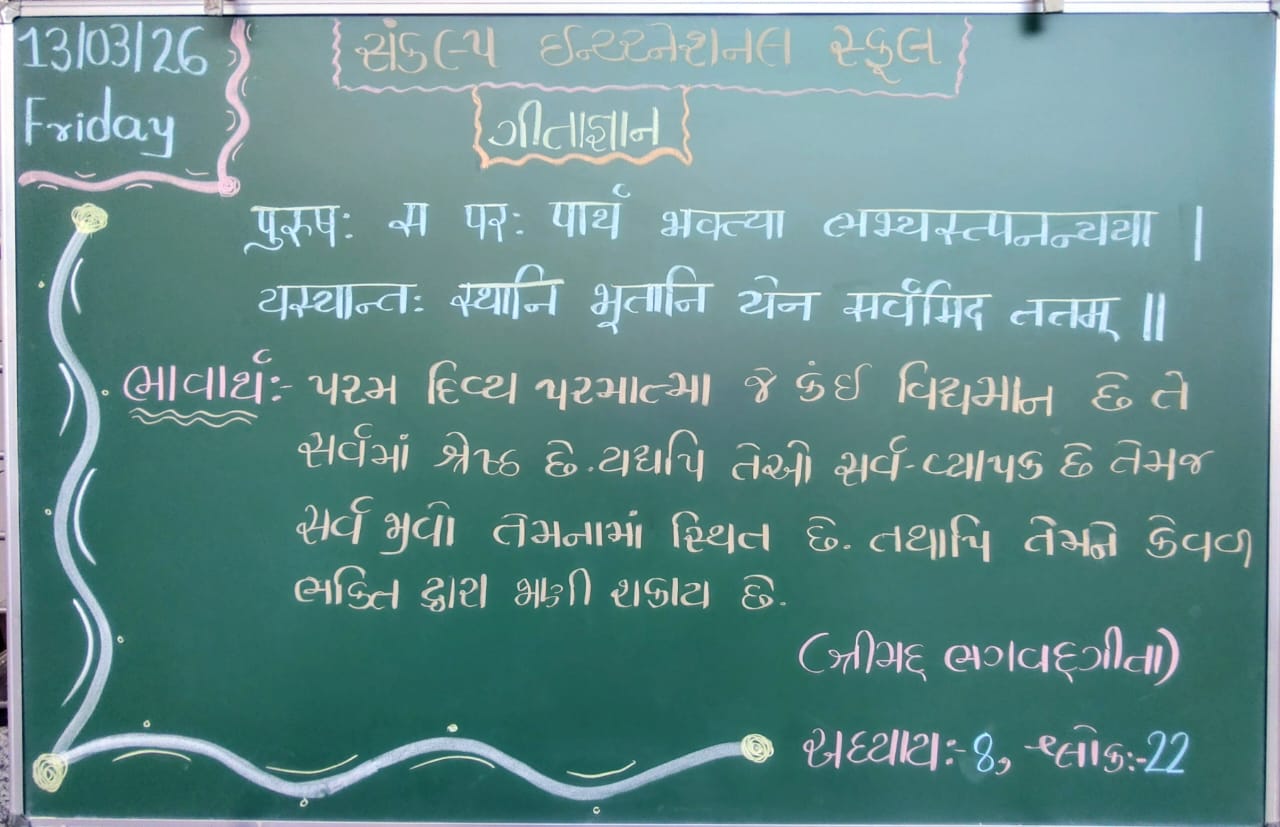 13/03/26
Friday
સંકલ્પ ઈન્ટરનેશનલ સ્કૂલ
ગીતાજ્ઞાન
पुरुषः स परः पार्थ भक्त्या लभ्यस्त्पनन्यया |
यस्यान्तः स्थानि भूतानि येन सर्वमिद ततम् ||
ભાવાર્થ:- પરમ દિવ્ય પરમાત્મા જે કંઈ વિદ્યમાન છે તે
સર્વમાં શ્રેષ્ઠ છે. યદ્યપિ તેઓ સર્વ-વ્યાપક છે તેમજ
સર્વ જીવો તેમનામાં સ્થિત છે. તથાપિ તેમને કેવળ
ભક્તિ દ્વારા જાણી શકાય છે.
(શ્રીમદ્ ભગવદ્ગીતા)
અધ્યાય:-8, શ્લોક:-22